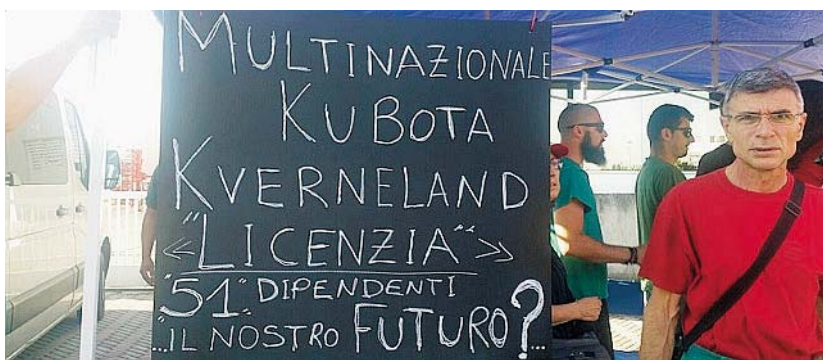 MULTINAZIONALE
KUBOTA
KVERNELAND
«"LICENZIA"»
"51" DIPENDENTI
...IL NOSTRO FUTURO?...